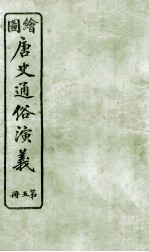 繪圖
唐史通俗演義
第五冊